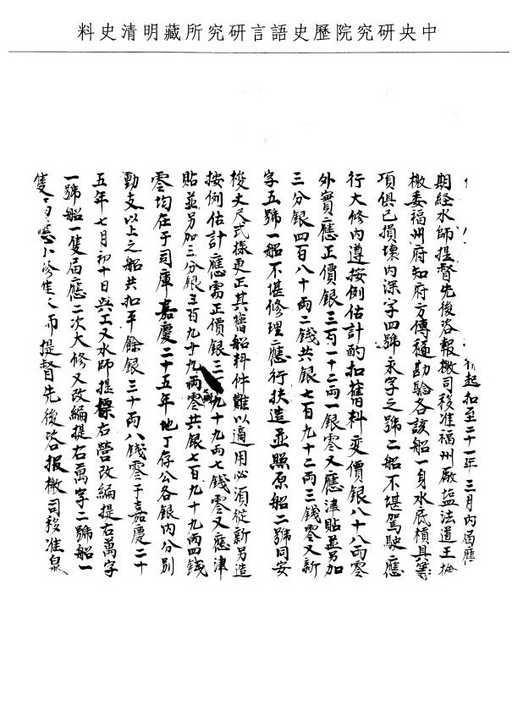 中央研究院歷史語言研究所藏明清史料
起扣至二十一年三月內屆應
期經水師提督先後咨報檄司移准福州廠塩法道王
檄委福州府知府方傳穟勘驗各該船一身水底槓具等
項俱已損壞內深字四號永字之號二船不堪駕駛應
行大修內遵按例估計酌扣舊料變價銀八十八兩零
外實應正價銀三百一十二兩一銀零又應津貼並另加
三分銀四百八十兩二錢共銀七百九十二兩三錢零又新
字五號一船不堪修理應行扶造並照原船二號同安
梭丈尺式樣更正其舊船料件難以適用必須從新另造
按例估計應需正價銀三九十九兩七錢零又應津
貼並另加三分銀三百九十九兩零共銀七百九十九兩四錢
零均在于司庫嘉慶二十五年地丁存公各銀內分別
動支以上之船共扣平餘銀三十兩八錢零于嘉慶二十
五年七月初十日興工又水師提標右營改編提右萬字
一號船一隻屆應二次大修又改編提右萬字二號船一
隻小修先而提督先後咨報檄司移准泉